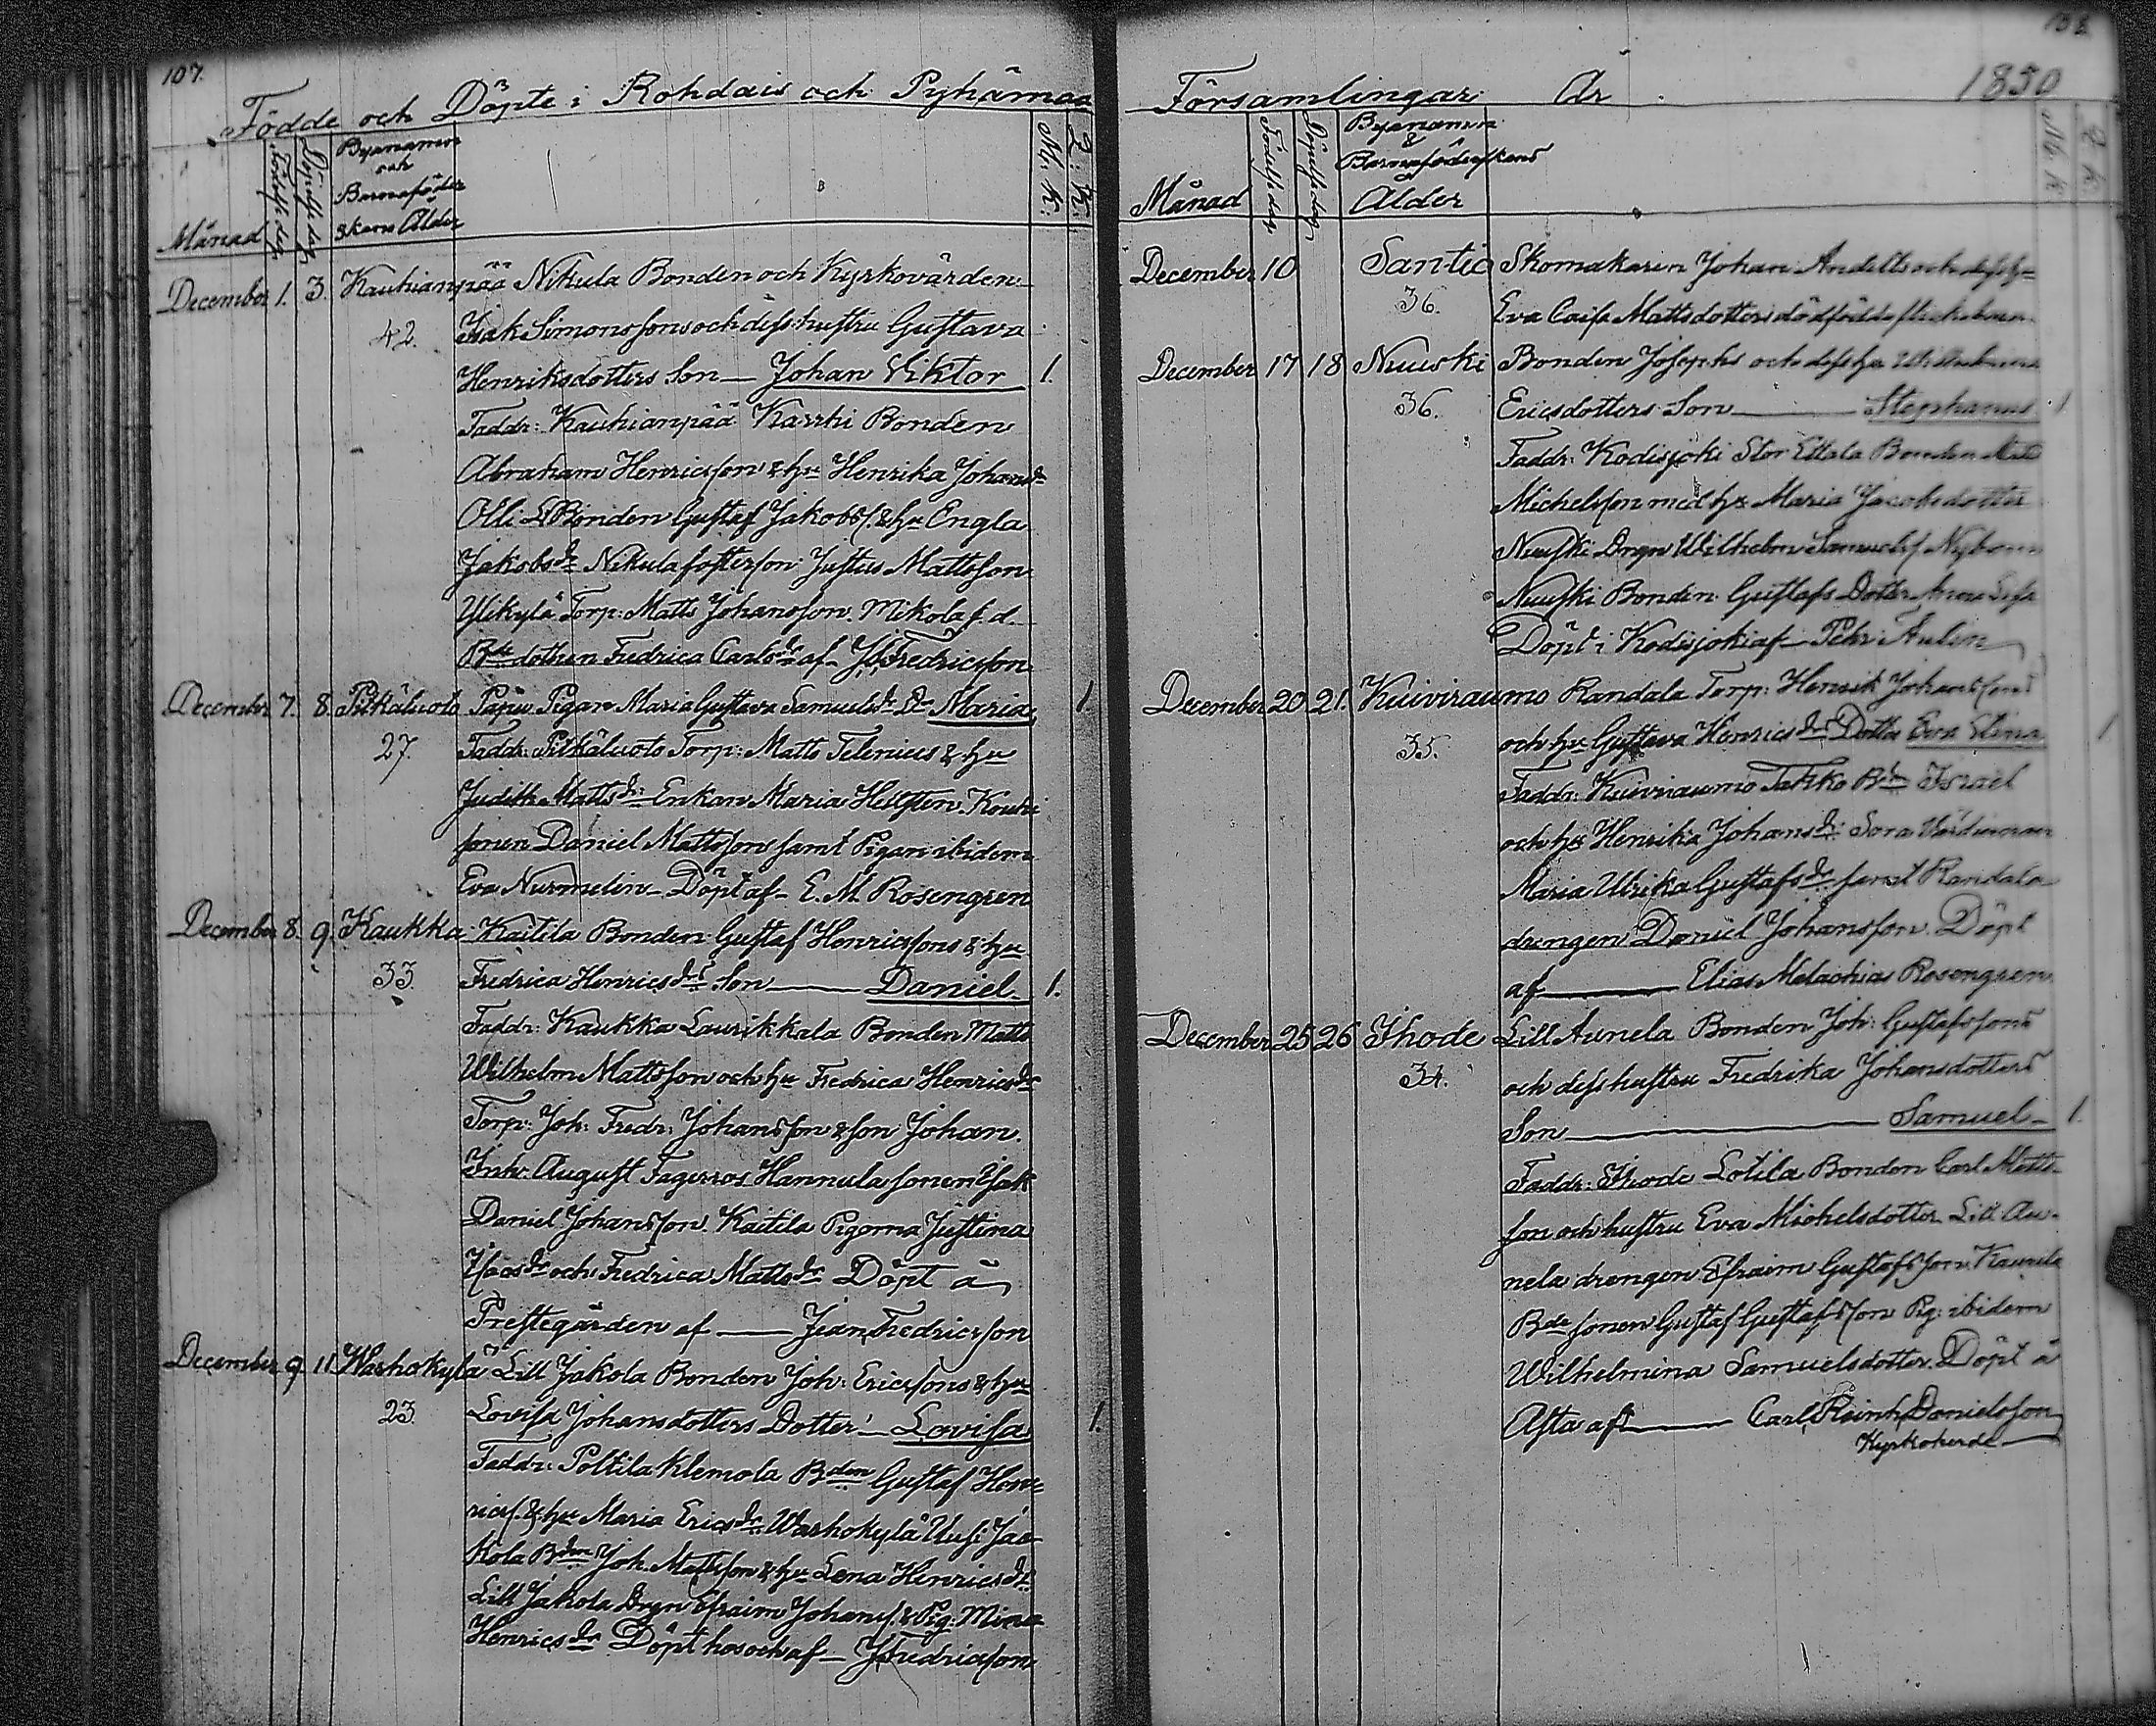 107.
Födde och Döpte i Rohdais och Pyhämaa
Månad
Födelsedag
Döpelsedag
Byanamn
och
Barnaföder
skans Ålder
M. K.
Q. K.
December 1. 3. Kauhianpää Nikula Bonden och Kyrkovärden
42. Isak Simonssons och dess hustru Gustava
Henriksdotters Son — Johan Viktor 1.
Faddr: Kauhianpää Karrhi Bonden
Abraham Henricsson & hu Henrika Johansdr
Olli Bonden Gustaf Jakobss. & hu Engla
Jakobsdr Nikula fosterson Justus Mattsson
Ylikylä Torp: Matts Johansson. Mikola f.d.
Bde dottren Fredrica Carlsdr af J Fredricsson
December 7. 8. Pitkäluoto Papu Pigan Maria Gustava Samuelsdrs Dr Maria 1
27. Faddr: Pitkäluoto Torp: Matts Telenius & hu
Judith Mattsdr Enkan Maria Hellsten. Kouhi
sonen Daniel Mattsson samt Pigan ibidem
Eva Nurmelin – Döpt af – E. M. Rosengren
December 8. 9. Kaukka Kaitila Bonden Gustaf Henricssons & hu
33. Fredrica Henricsdrs Son — Daniel 1.
Faddr: Kaukka Laurikkala Bonden Matts
Wilhelm Mattsson och hu Fredrica Henricsdr
Torp: Joh: Fredr: Johansson & son Johan.
Inh: August Fagerros Hannula sonen Isak
Daniel Johansson. Kaitila Pigorna Justina
Isacsdr och Fredrica Mattsdr Döpt å
Prestegården af — Jean Fredricsson
December 9. 11. Warhokylä Lill Jakola Bonden Joh: Ericssons & hu
23. Lovisa Johansdotters Dotter — Lovisa 1.
Faddr: Poltila Klemola Bden Gustaf Hen=
ricss. & hu Maria Ericsdr. Warhokylä Uusi Jaa
kola Bden Joh. Mattsson & hu Lena Henricsdr
Lill Jakola Drgn Efraim Johanss. & Pig: Mina
Henricsdr Döpt hos och af – J Fredricsson
108
Församlingar År 1850
Månad
Födelsedag
Döpelsedag
Byanamn
&
Barnaföderskans
Ålder
M. K.
Q. K.
December 10 Santio Skomakaren Johan Andells och dess hu
36. Eva Caisa Mattsdotters dödfödde flickebarn
December 17 18 Nuuski Bonden Josephs och dess hu Wilhelmina
36. Ericsdotters Son — Stephanus 1
Faddr: Kodisjoki Stor Ettala Bonden Matts
Michelsson med hu Maria Jacobsdotter
Nuuski Drgn Wilhelm Samuelss. Nybom
Nuuski Bonden Gustafs Dotter Anna Lisa
Döpt i Kodisjoki af – Pehr Aulin
December 20 21. Kuiviraumo Randala Torp: Henrik Johanssons
35. och hu Gustava Henricsdrs Dotter Eva Elina 1
Faddr: Kuiviraumo Takko Bdn Israel
och hu Henrika Johansdr. Sora Värdinnan
Maria Ulrika Gustafsdr. samt Randala
drengen Daniel Johansson. Döpt
af — Elias Malachias Rosengren
December 25 26 Ihode Lill Aunela Bonden Joh: Gustafssons
34. och dess hustru Fredrika Johansdotters
Son — Samuel 1.
Faddr: Ihode Lotila Bonden Carl Matts-
son och hustru Eva Michelsdotter Lill Au-
nela drengen Efraim Gustafsson. Kaurila
Bde sonen Gustaf Gustafsson Pig: ibidem
Wilhelmina Samuelsdotter. Döpt å
Asta af — Carl Reinh Danielsson
Kyrkoherde